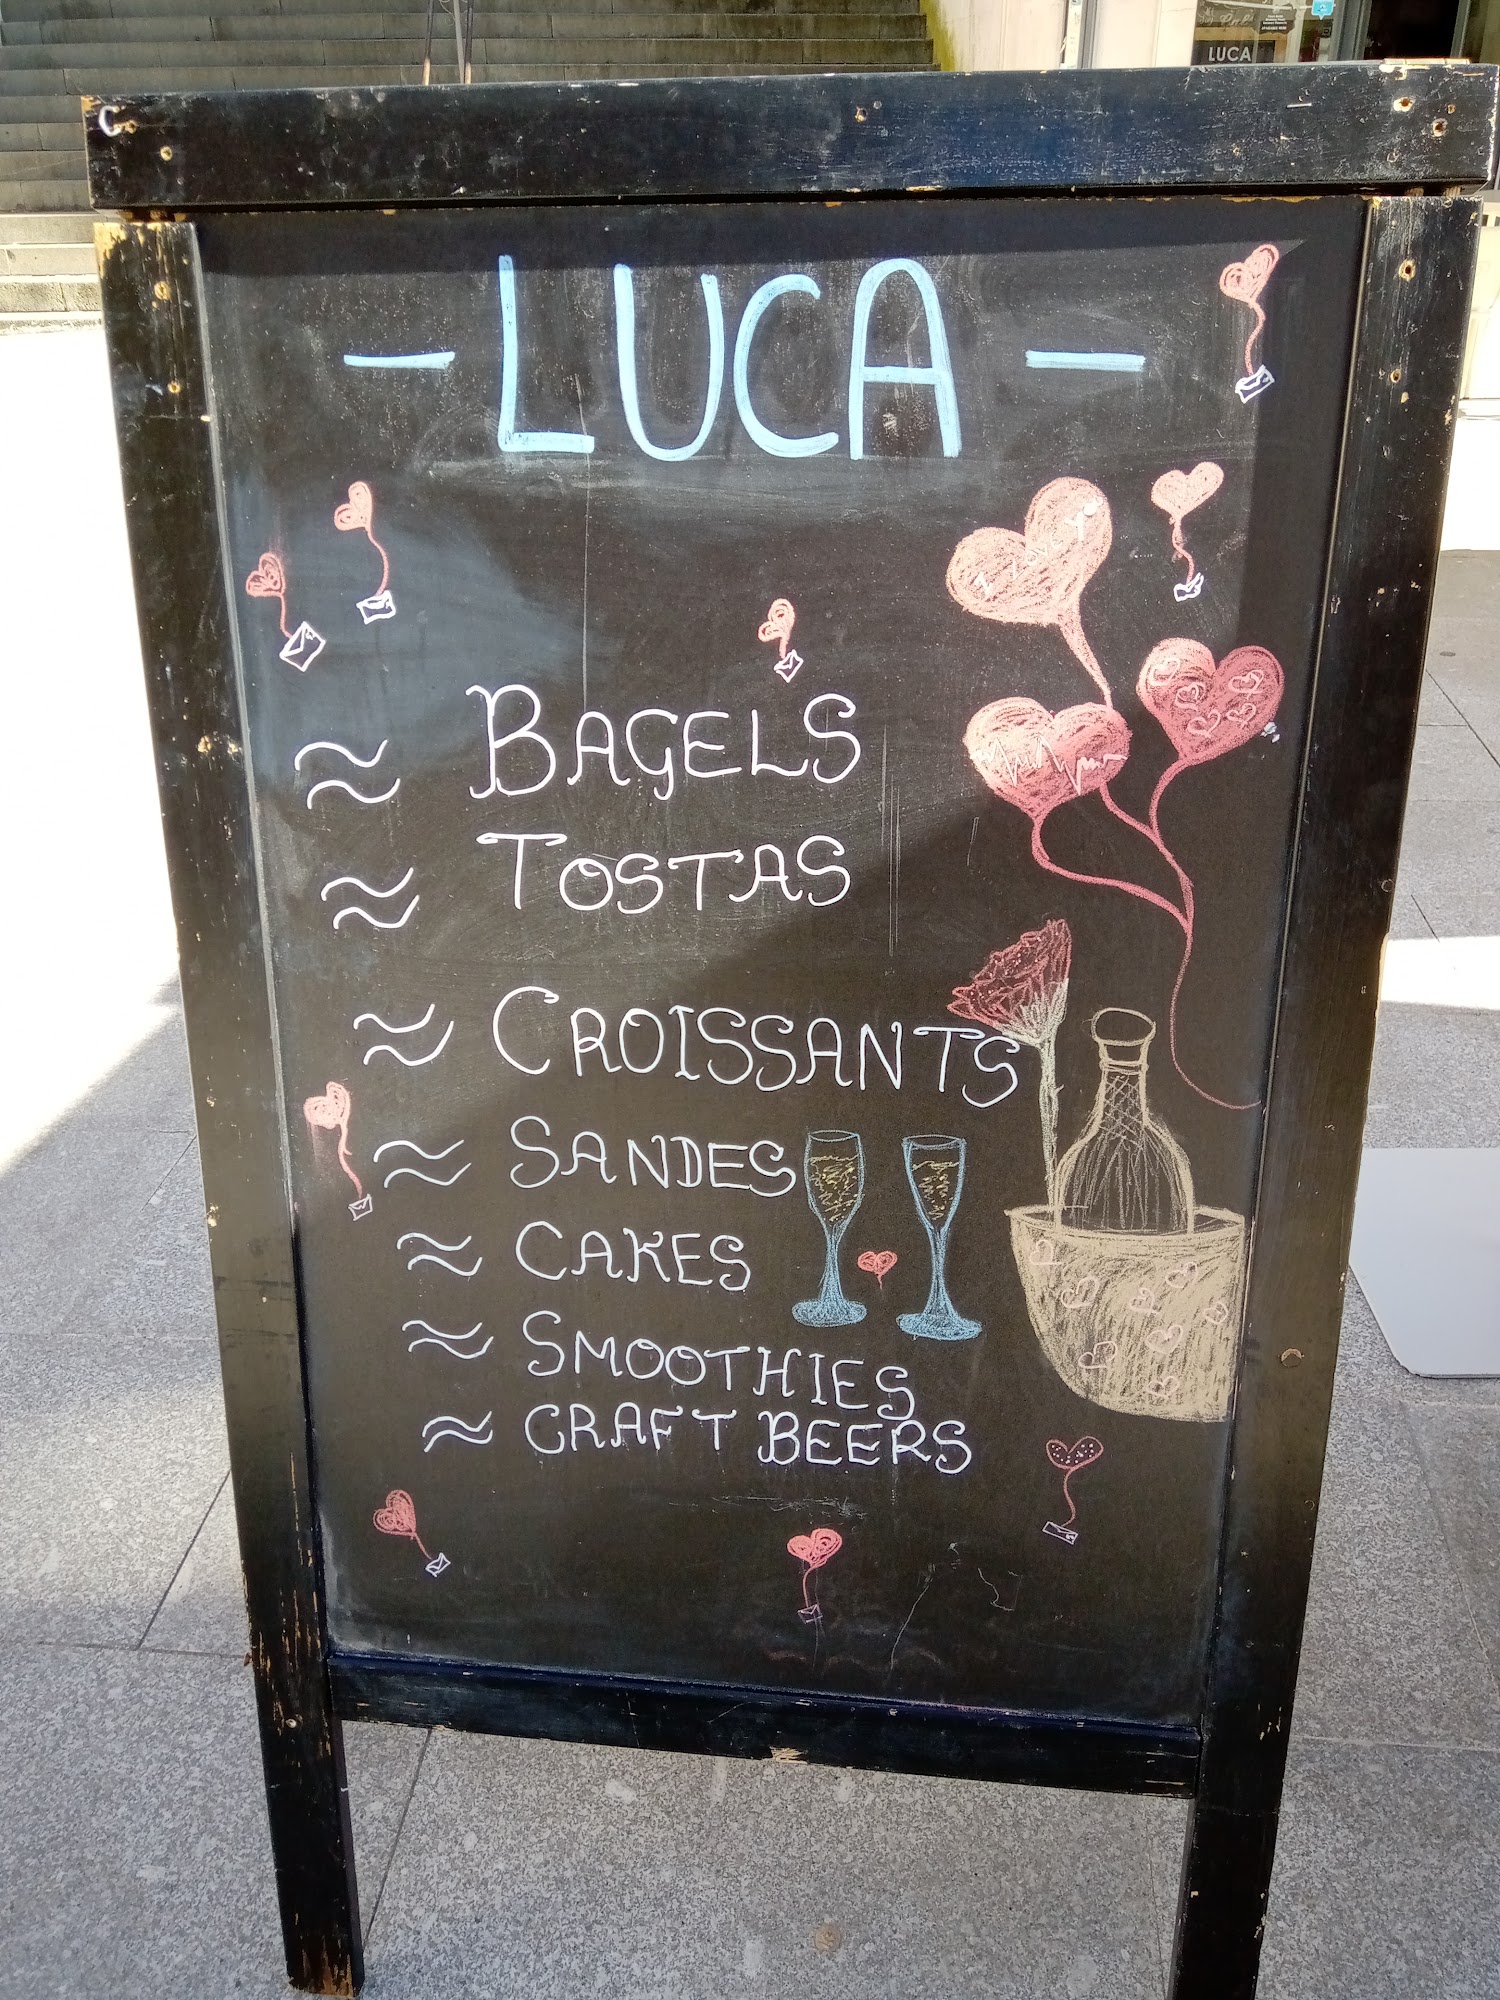 LUCA
- LUCA -
I LOVE YO
≈ BAGELS
≈ TOSTAS
≈ CROISSANTS
≈ SANDES
≈ CAKES
≈ SMOOTHIES
≈ CRAFT BEERS